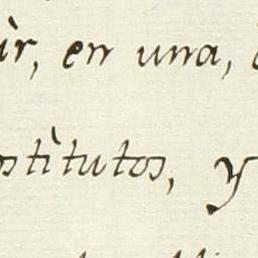 ir, en una,
stitutos, y